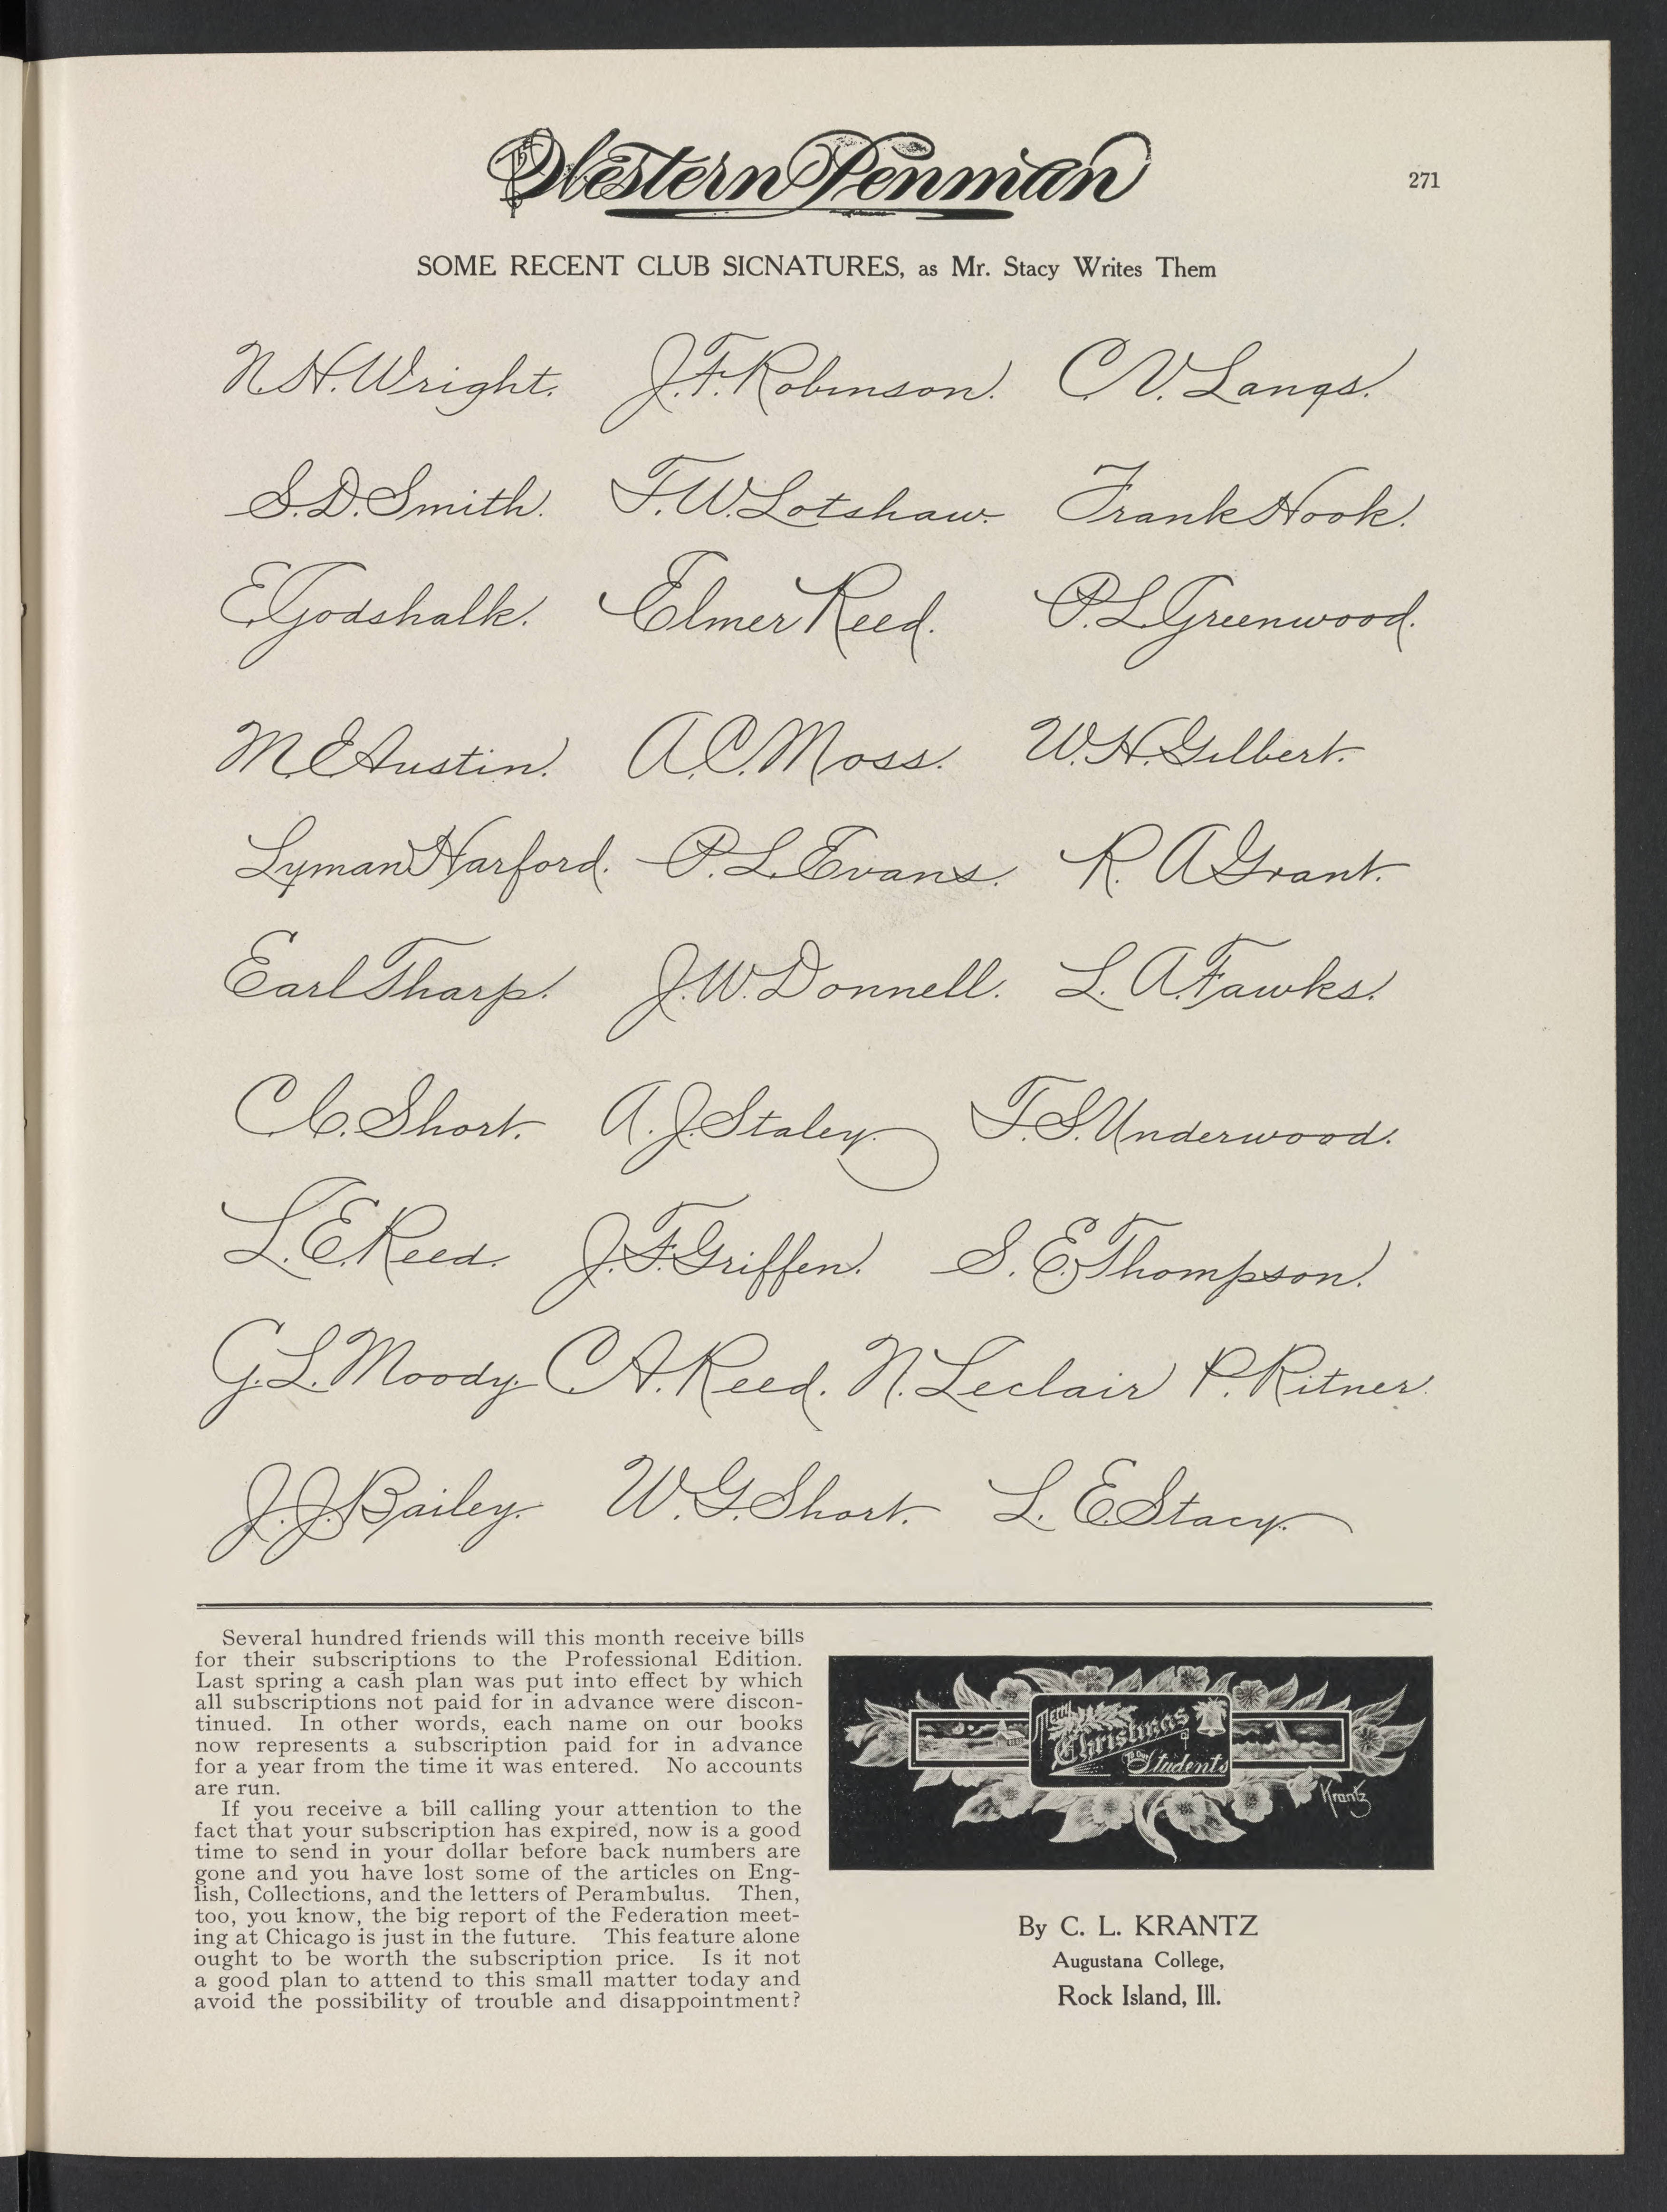 The Western Penman
271
SOME RECENT CLUB SICNATURES, as Mr. Stacy Writes Them
N. H. Wright. J. F. Robinson. C. V. Langs.
S. D. Smith. F. W. Lotshaw. Frank Hook.
E. Godshalk. Elmer Reed. P. L. Greenwood.
M. E. Austin. A. C. Moss. W. H. Gilbert.
Lyman Harford. P. L. Evans. R. A. Grant.
Earl Tharp. J. W. Donnell. L. A. Fawks.
C. C. Short. A. J. Staley. T. S. Underwood.
L. E. Reed. J. F. Griffen. S. E. Thompson.
G. L. Moody. C. A. Reed. N. Leclair P. Ritner.
J. J. Bailey. W. G. Short. L. E. Stacy.
Several hundred friends will this month receive bills
for their subscriptions to the Professional Edition.
Last spring a cash plan was put into effect by which
all subscriptions not paid for in advance were discon-
tinued. In other words, each name on our books
now represents a subscription paid for in advance
for a year from the time it was entered. No accounts
are run.
If you receive a bill calling your attention to the
fact that your subscription has expired, now is a good
time to send in your dollar before back numbers are
gone and you have lost some of the articles on Eng-
lish, Collections, and the letters of Perambulus. Then,
too, you know, the big report of the Federation meet-
ing at Chicago is just in the future. This feature alone
ought to be worth the subscription price. Is it not
a good plan to attend to this small matter today and
avoid the possibility of trouble and disappointment?
Merry
Christmas
To Our
Students
Krantz
By C. L. KRANTZ
Augustana College,
Rock Island, Ill.